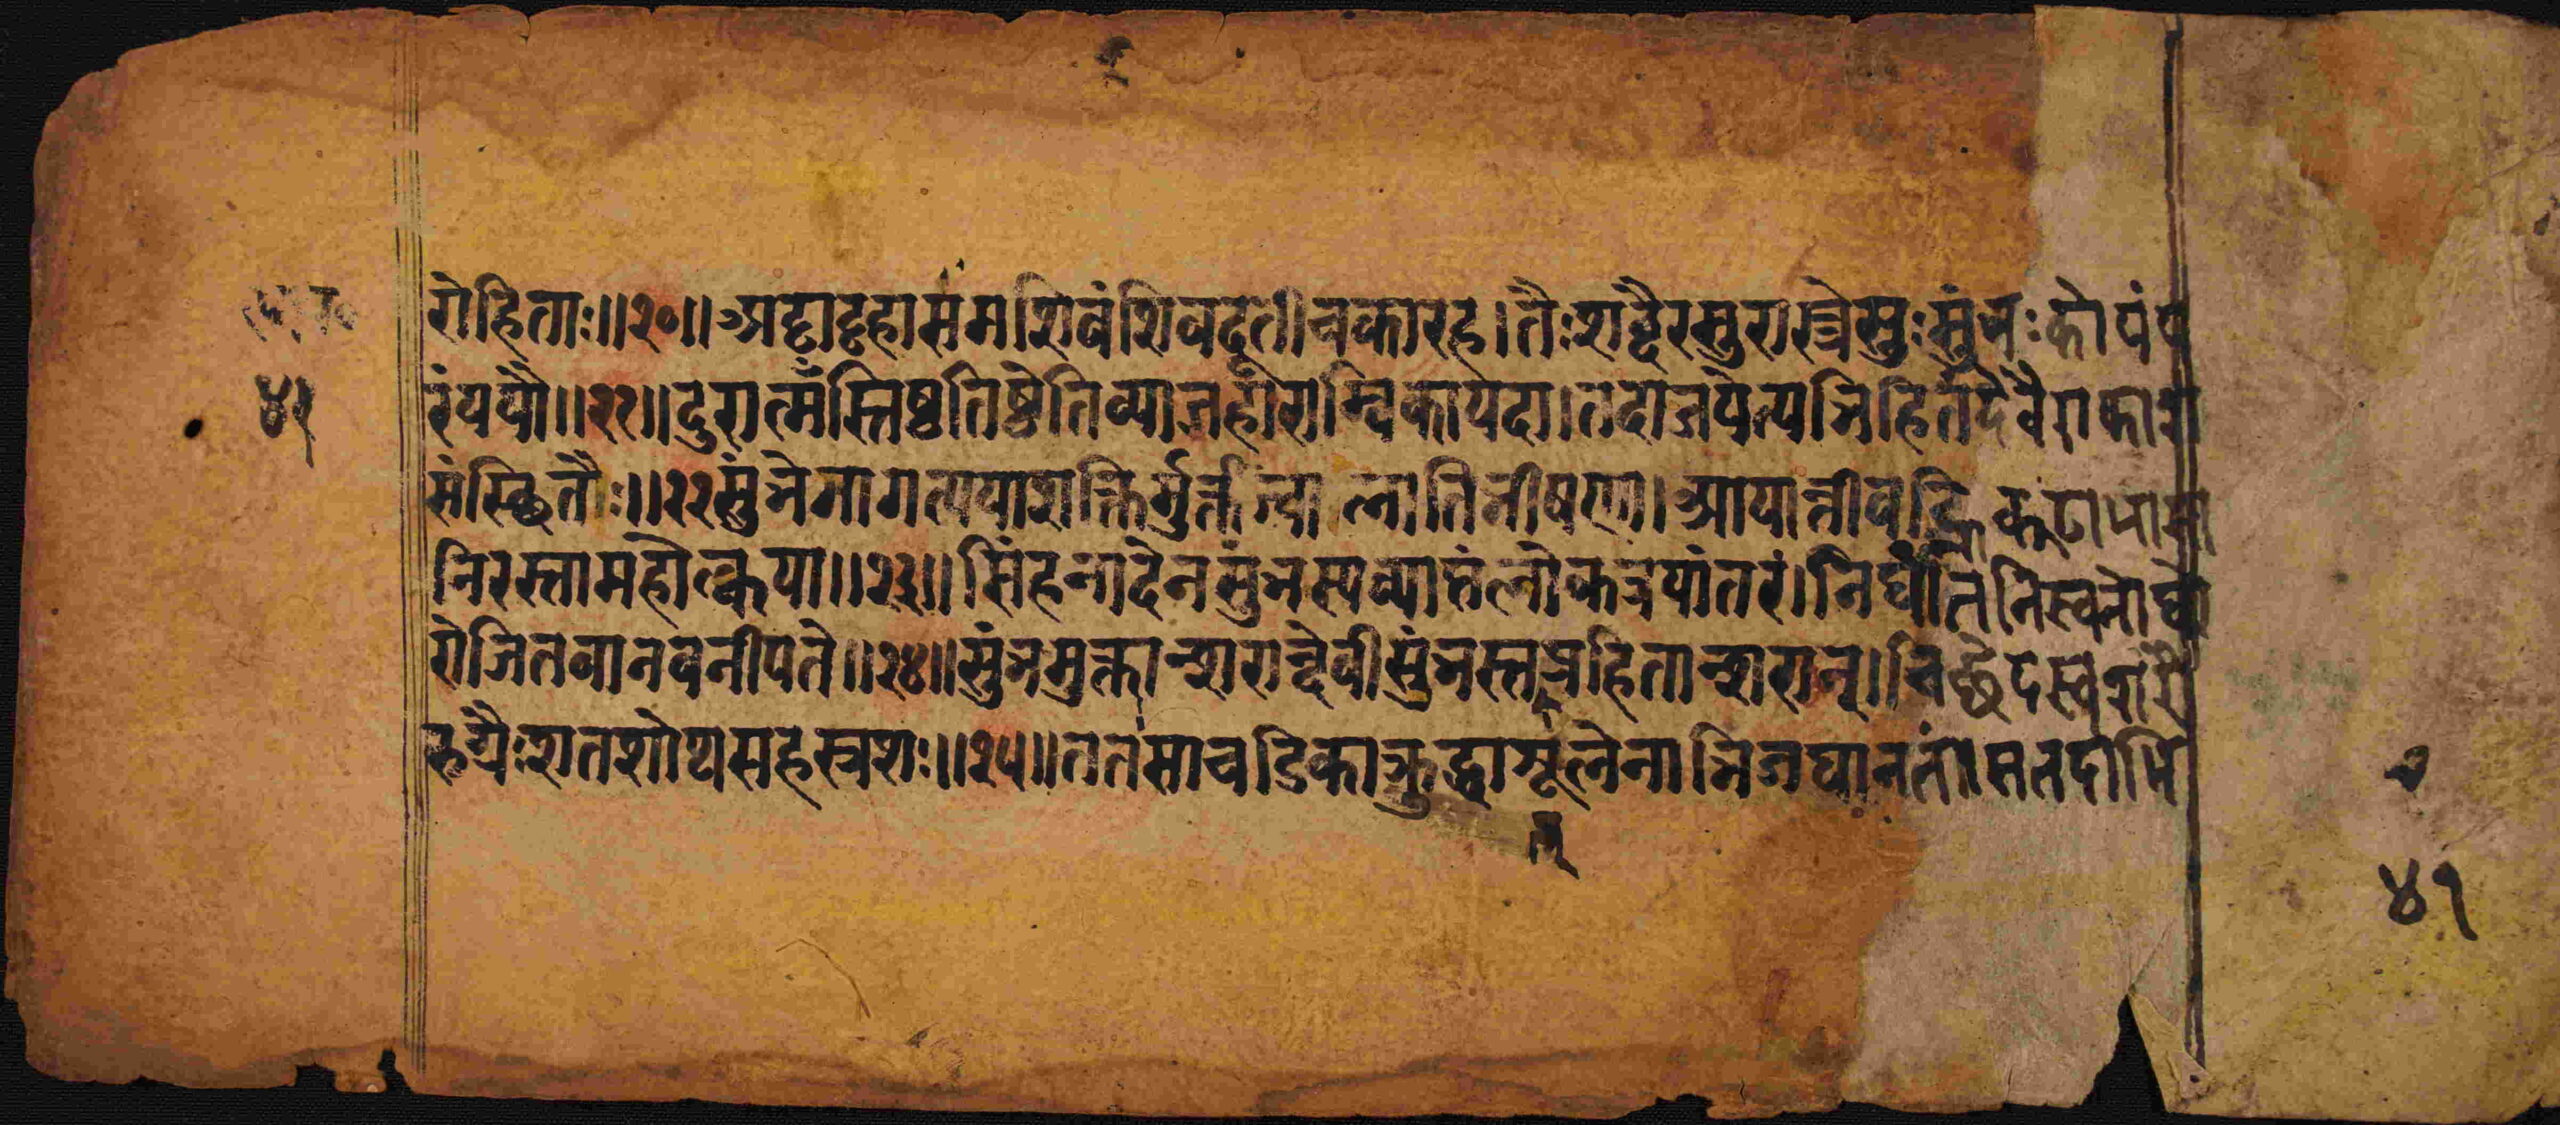 रोहिताः॥२०॥अट्टाट्टहासमशिवंशिवदूतीचकारह।तैःशब्दैरसुरास्त्रेसुःसुंभःकोपंप
४१
रंययौ॥२१॥दुरात्मँस्तिष्ठतिष्ठेतिव्याजहारांम्बिकायदा।तदाजयेत्यभिहितंदेवैराकाश
संस्थितैः॥२२सुंभेनागत्ययाशक्तिर्मुक्ताज्वालातिभीषणा।आयान्तीवह्निकूटाभासा
निरस्तामहोल्कया॥२३॥सिंहनादेनसुंभस्यव्याप्तंलोकत्रयांतरं।निर्घातनिस्वनोघो
रोजितवानवनीपते॥२४॥सुंभमुक्ताञ्शरान्देवीसुंभस्तत्प्रहिताञ्शरान्।चिच्छेदस्वशरै
रुग्रैःशतशोथसहस्रशः॥२५॥ततसाचंडिकाक्रुद्धाशूलेनाभिजघानतं।सतदाभि
४१